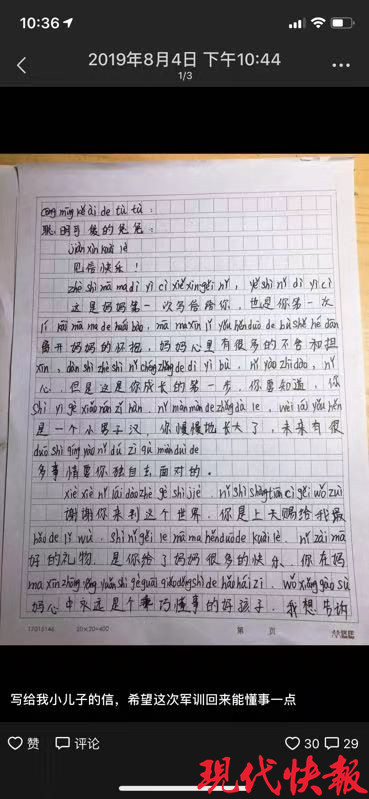 10:36
2019年8月4日 下午10:44
1/3
cōng míng kě ài de tù tù:
聪明可爱的兔兔:
jiàn xìn kuài lè
见信快乐!
zhè shì mā ma dì yī cì xiě xìn gěi nǐ, yě shì nǐ dì yī cì
这是妈妈第一次写信给你,也是你第一次
lí kāi mā ma de huái bào, mā ma xīn lǐ yǒu hěn duō de bù shě hé dān
离开妈妈的怀抱,妈妈心里有很多的不舍和担
xīn, dàn shì zhè shì nǐ chéng zhǎng de dì yī bù, nǐ yào zhī dào, nǐ
心,但是这是你成长的第一步,你要知道,你
shì yī gè xiǎo nán zǐ hàn, nǐ màn màn de zhǎng dà le, wèi lái yǒu hěn
是一个小男子汉,你慢慢地长大了,未来有很
duō shì qíng yào nǐ dú zì qù miàn duì de
多事情要你独自去面对的。
xiè xiè nǐ lái dào zhè gè shì jiè, nǐ shì shàng tiān cì gěi wǒ zuì
谢谢你来到这个世界,你是上天赐给我最
hǎo de lǐ wù, shì nǐ gěi le mā ma hěn duō de kuài lè, nǐ zài mā
好的礼物,是你给了妈妈很多的快乐,你在妈
ma xīn zhōng yǒng yuǎn shì gè guāi qiǎo dǒng shì de hǎo hái zi, wǒ xiǎng gào sù
妈心中永远是个乖巧懂事的好孩子,我想告诉
17015146 20×20=400 第 页
写给我小儿子的信,希望这次军训回来能懂事一点
赞 评论 30 29
现代快报